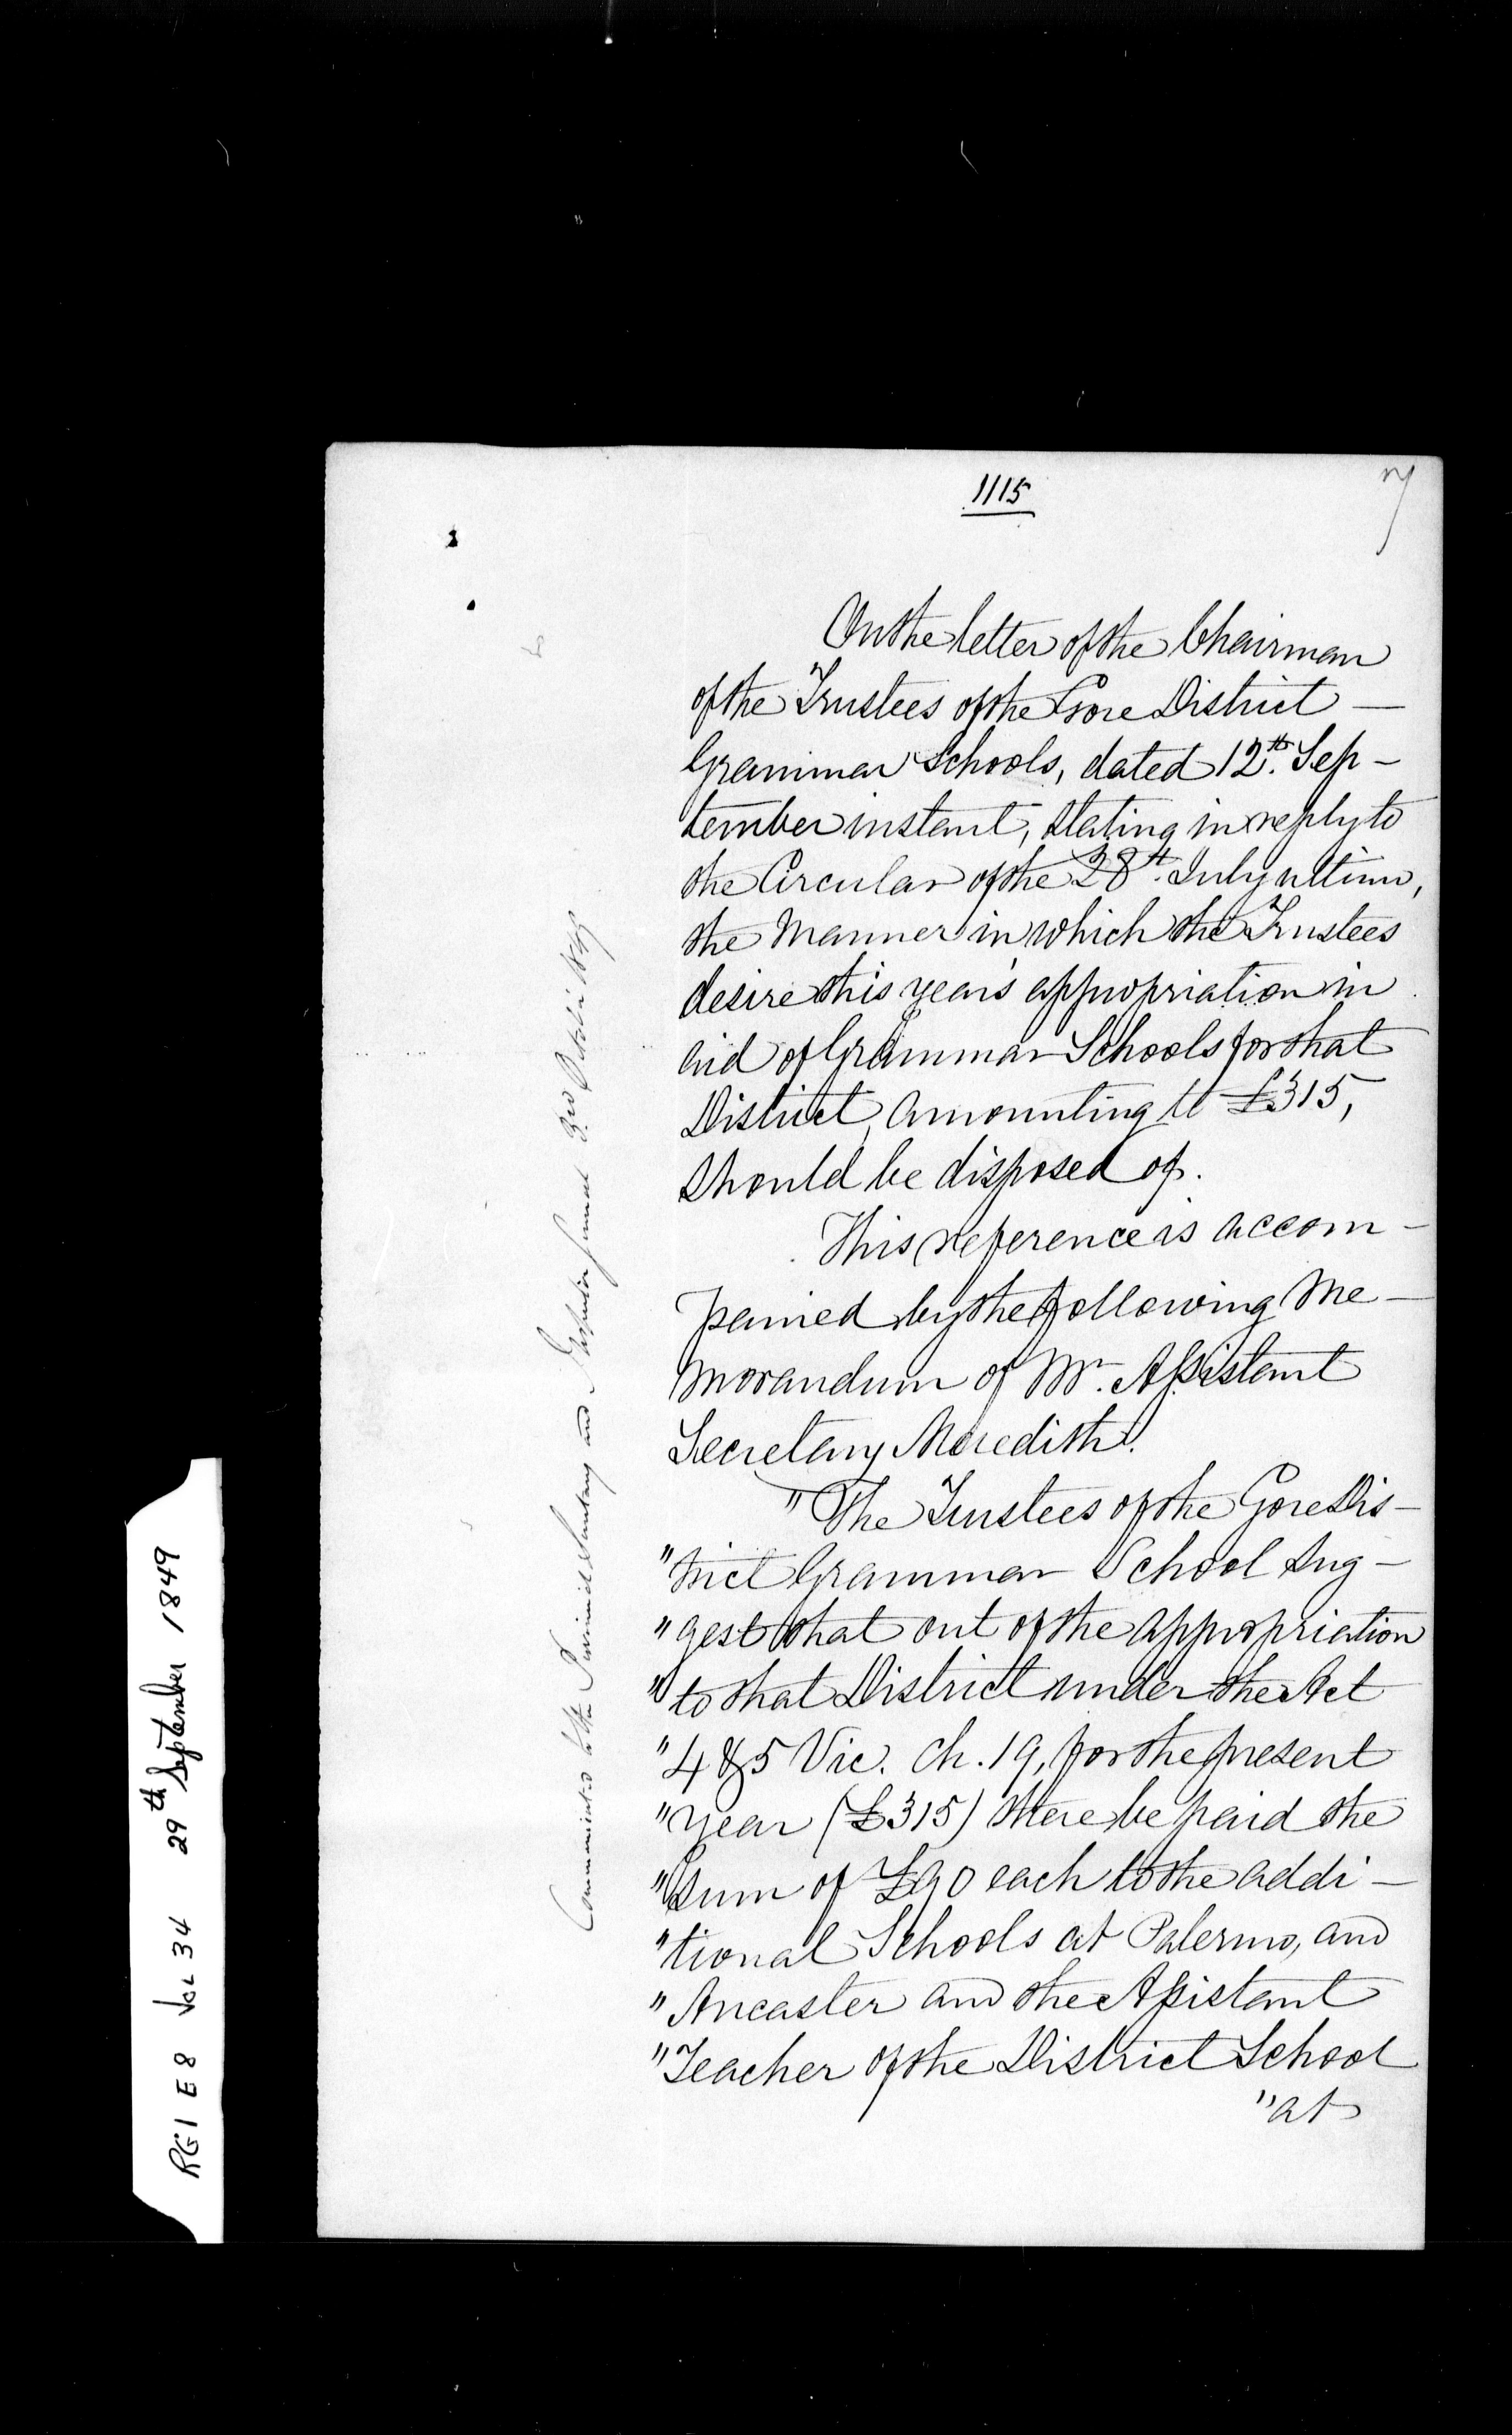 1115
7
On the letter of the Chairman
of the Trustees of the Gore District —
Grammar Schools, dated 12th. Sep -
tember instant, stating in reply to
the Circular of the 28th. July ultimo,
the Manner in which the Trustees
desire this year's appropriation in
aid of Grammar Schools for that
District, amounting to £315,
should be disposed of.
This reference is accom -
panied by the following Me -
morandum of Mr. Assistant
Secretary Meredith.
"The Trustees of the Gore Dis -
"trict Grammar School sug -
"gest that out of the appropriation
"to that District under the Act
"4 & 5 Vic. Ch. 19, for the present
"year (£315) there be paid the
"sum of £90 each to the addi -
"tional Schools at Palermo, and
"Ancaster and the Assistant
"Teacher of the District School
"at
Communicated to the Provincial Secretary and Inspector General 3rd October 1849
RG1 E8 Vol 34 29th September 1849